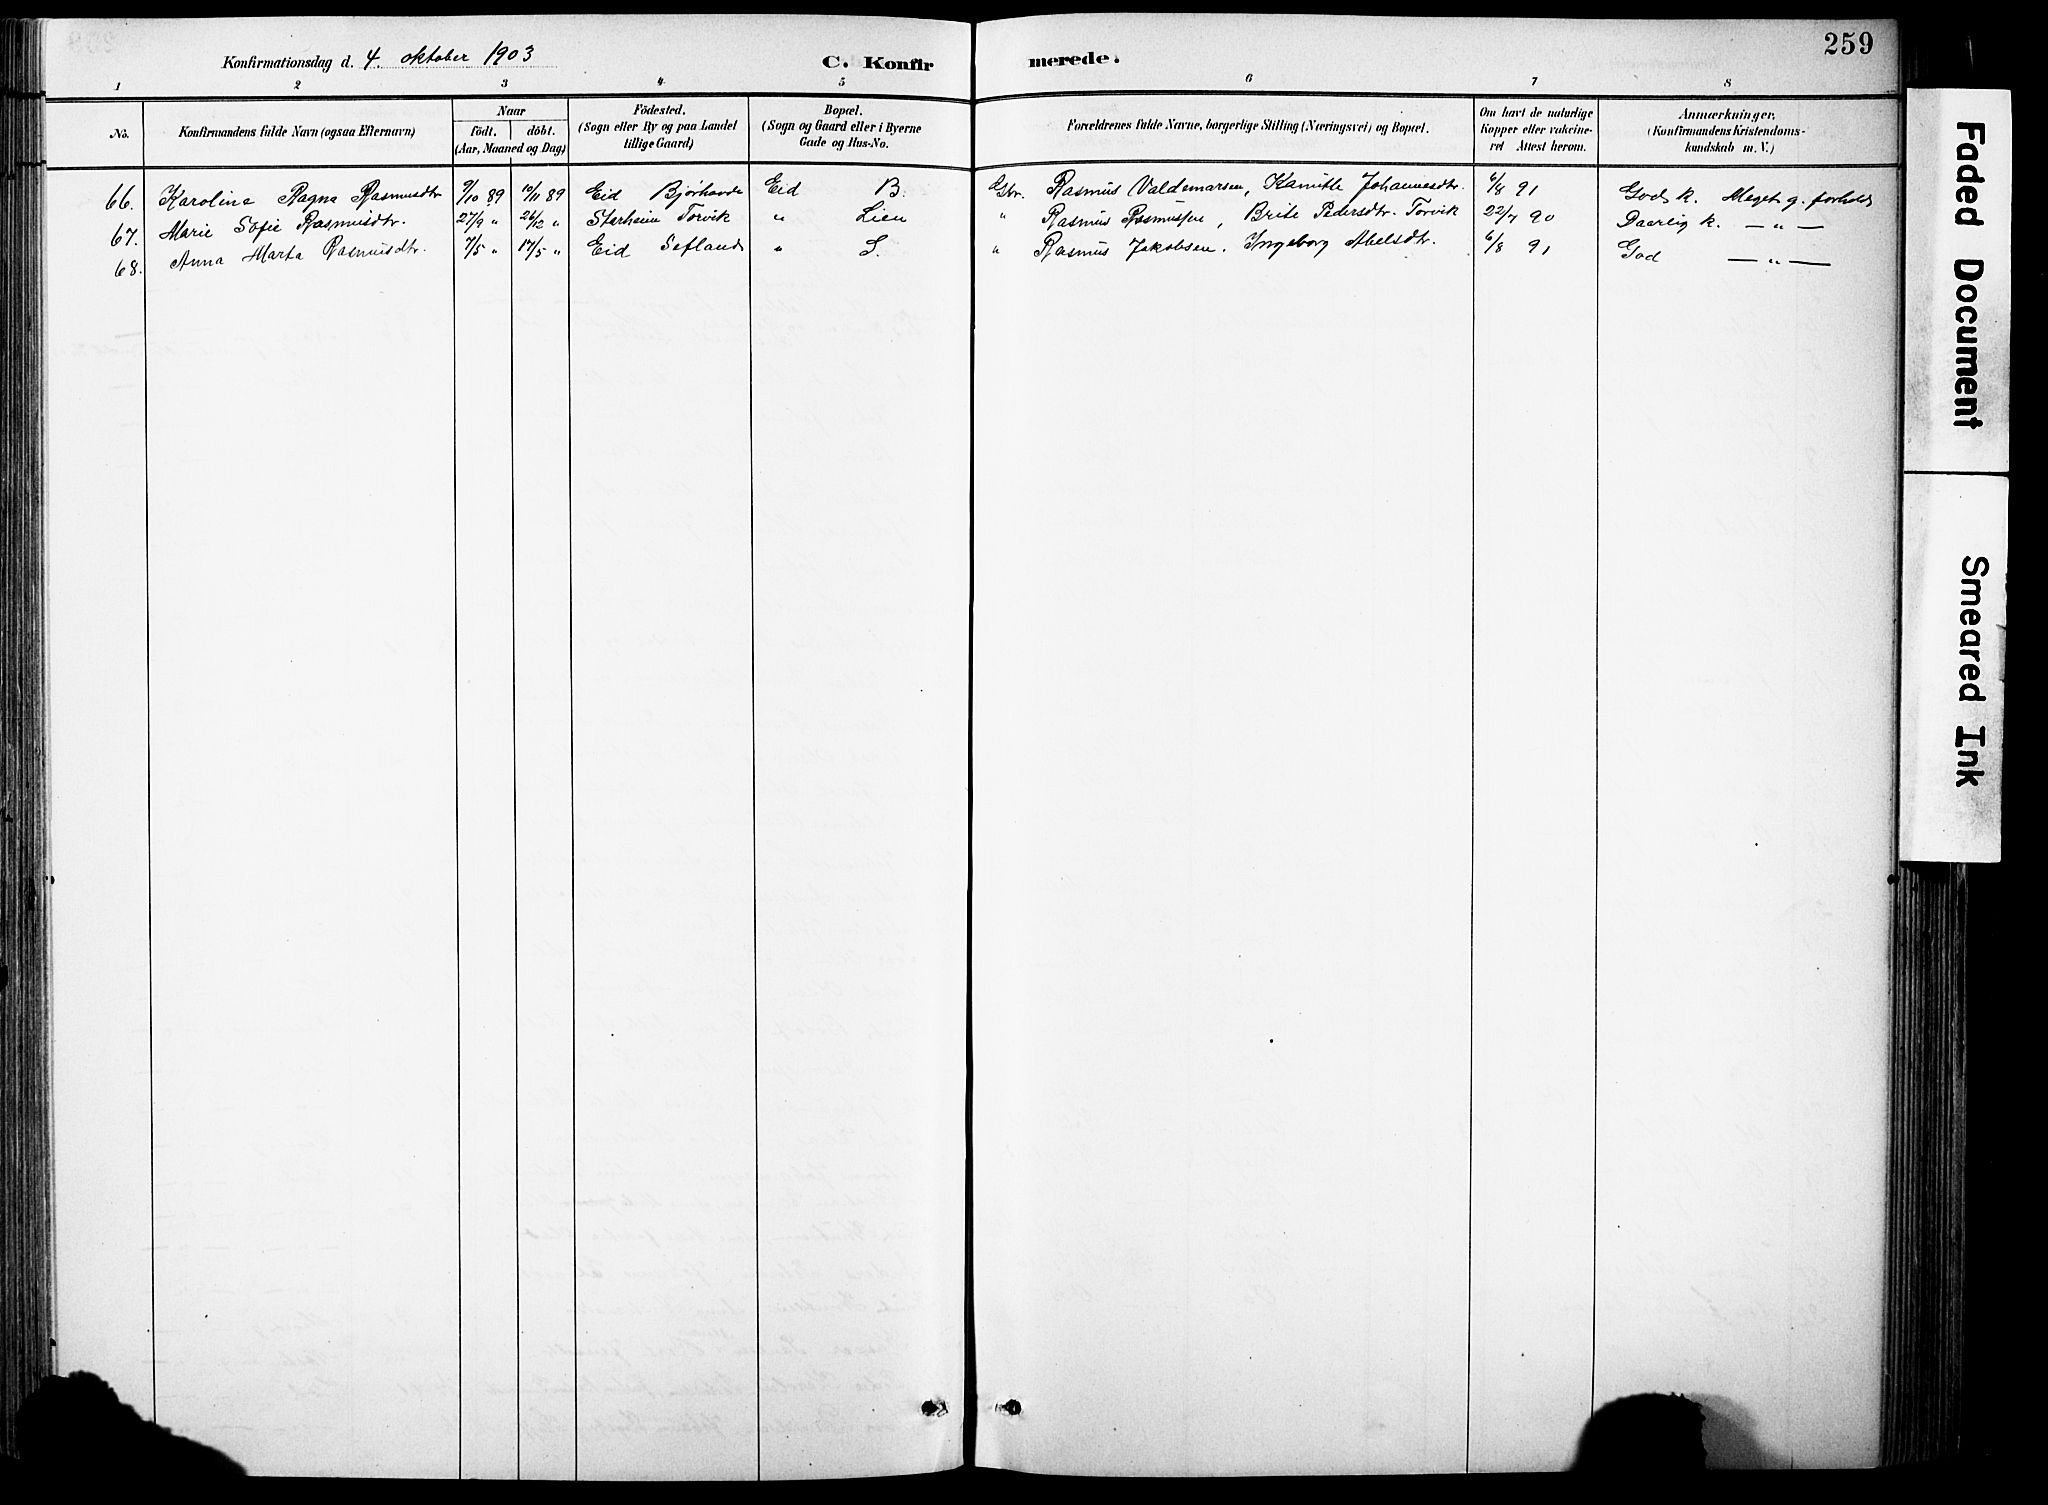 259
Konfirmationsdag d. 4. oktober 1903 C. Konfirmerede.
1 2 3 4 5 6 7 8
No. Konfirmandens fulde Navn (ogsaa Efternavn) Naar födt. döbt. (Aar, Maaned og Dag) Födested. (Sogn eller By og paa Landet tillige Gaard) Bopæl. (Sogn og Gaard eller i Byerne Gade og Hus-No. Forældrenes fulde Navne, borgerlige Stilling (Næringsvei) og Bopæl. Om havt de naturlige Kopper eller vakcineret Attest herom. Anmærkninger. (Konfirmandens Kristendomskundskab m. V.)
66. Karolina Ragna Rasmusdtr 9/10 89 10/11 89 Eid Bjørhovde Eid B. Gbr. Rasmus Valdemarsen, Kamitle Johannesdtr. 6/8 91 God k. Meget g. forhold
67. Marie Sofie Rasmusdtr. 27/9 " 26/12 " Starheim Torvik " Lien " Rasmus Rasmussen, Brite Pedersdtr. Torvik 22/7 90 Daarlig k. — " —
68. Anna Marta Rasmusdtr. 7/5 " 17/5 " Eid Sefland " S. " Rasmus Jakobsen. Ingeborg Abelsdtr. 6/8 91 God — " —
Faded Document
Smeared Ink